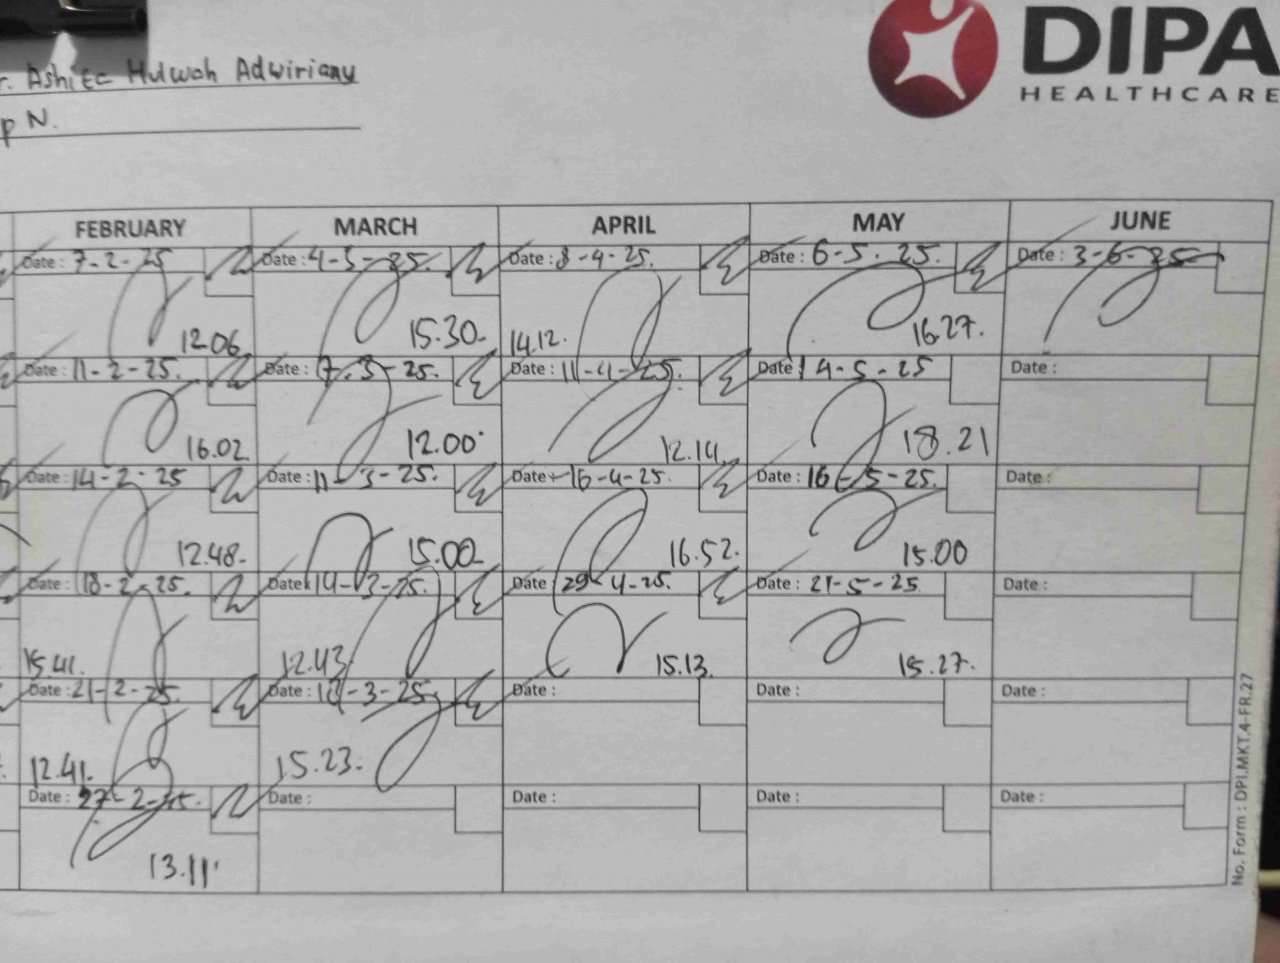 DIPA
HEALTHCARE
r. Hulwah Adwiriany
p N.
FEBRUARY MARCH APRIL MAY JUNE
Date : 7-2-25 Date : 4-3-25. Date : 8-4-25. Date : 6-5.25. Date : 3-6-25
12.06 15.30. 14.12. 16.27.
Date : 11-2-25. Date : 7.3-25. Date : 11-4-25. Date : 14-5-25 Date :
16.02 12.00 12.14. 18.21
Date : 14-2-25 Date : 11-3-25. Date : 16-4-25. Date : 16-5-25. Date :
12.48. 15.00 16.52. 15.00
Date : 18-2-25. Date : 14-3-25. Date : 29-4-25. Date : 21-5-25 Date :
15.41. 12.43 15.13. 15.27.
Date : 21-2-25. Date : 18-3-25 Date : Date : Date :
12.41. 15.23.
Date : 27-2-25. Date : Date : Date : Date :
13.11
No. Form : DPI.MKT.4-FR.27